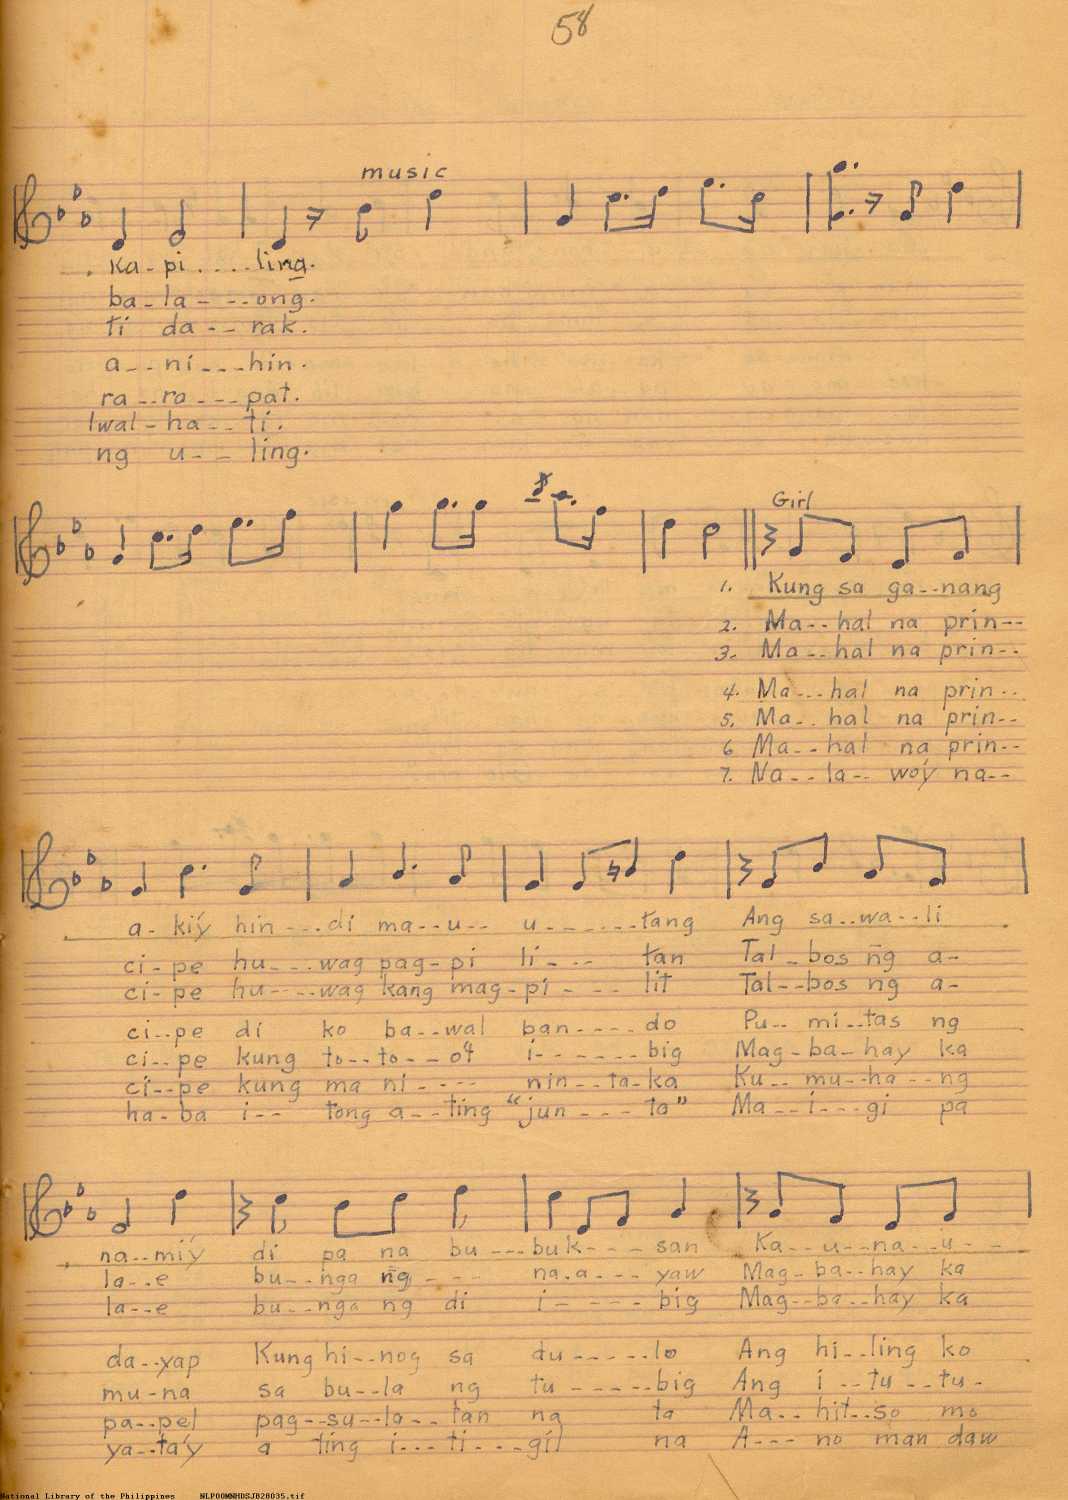 58
music
ka-pi....ling.
ba-la---ong.
ti da--rak.
a--ni---hin.
ra--ra---pat.
lwal-ha--ti.
ng u--ling.
Girl
1. Kung sa ga--nang
2. Ma--hal na prin--
3. Ma--hal na prin--
4. Ma---hal na prin--
5. Ma--hal na prin--
6 Ma--hal na prin--
7. Na--la--woý na--
a-kiý hin---di ma--u-- u------tang Ang sa--wa--li
ci-pe hu---wag pag-pi li--- tan Tal-bos n̄g a-
ci-pe hu---wag kang mag-pi--- lit Tal--bos ng a-
ci--pe di ko ba--wal ban----do Pu-- mi--tas ng
ci--pe kung to--to--ot i------big Mag-ba-hay ka
ci--pe kung ma ni---- nin--ta-ka Ku-- mu--ha--ng
ha-ba i-- tong a--ting "jun---ta" Ma--i---gi pa
na--miý di pa na bu---buk---san Ka--u--na--u--
la--e bu--nga n̄g---- na.a---yaw Mag-ba--hay ka
la--e bu--nga ng di i----big Mag--ba--hay ka
da--yap Kung hi--nog sa du-----lo Ang hi--ling ko
mu-na sa bu--la ng tu-----big Ang i--tu--tu-
pa--pel pag--su--la--tan na ta Ma--hit--so mo
ya--ta'y a ting i---ti---gil na A---no man daw
National Library of the Philippines NLPOOMNHDSJB28035.tif